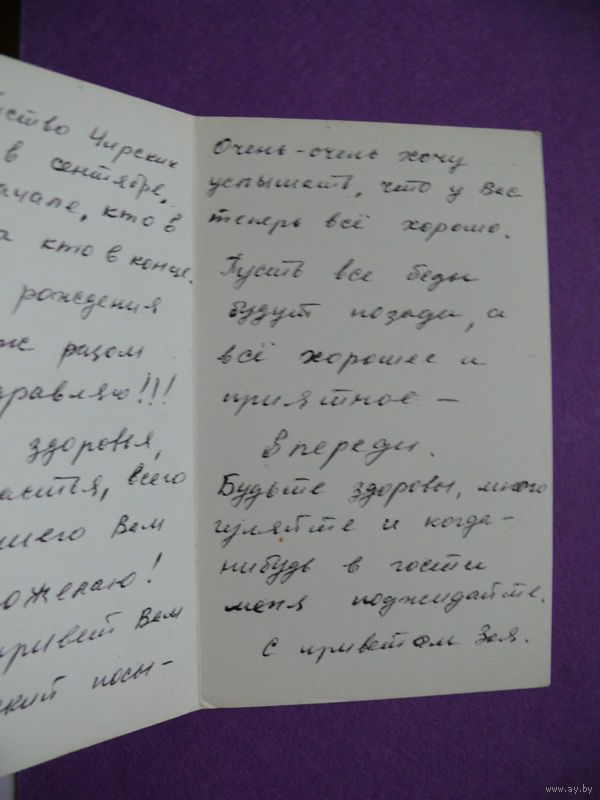 йство Чирских
в сентябре,
ачале, кто в
а кто в конце.
рождения
ж разом
дравляю!!!
здоровья,
астья, всего
шего Вам
ожелаю!
привет Вам
ский посы-
Очень-очень хочу
услышать, что у вас
теперь всё хорошо.
Пусть все беды
будут позади, а
всё хорошее и
приятное -
впереди.
Будьте здоровы, много
гуляйте и когда-
нибудь в гости
меня поджидайте.
С приветом Зоя.
www.ay.by